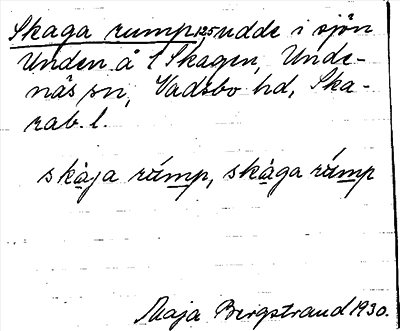 Skaga rump, 125 udde i sjön
Unden å l Skagen, Unde-
näs sn, Vadsbo hd, Ska-
rab. l.
skàja rúmp, skàga rúmp
Maja Bergstrand 1930.